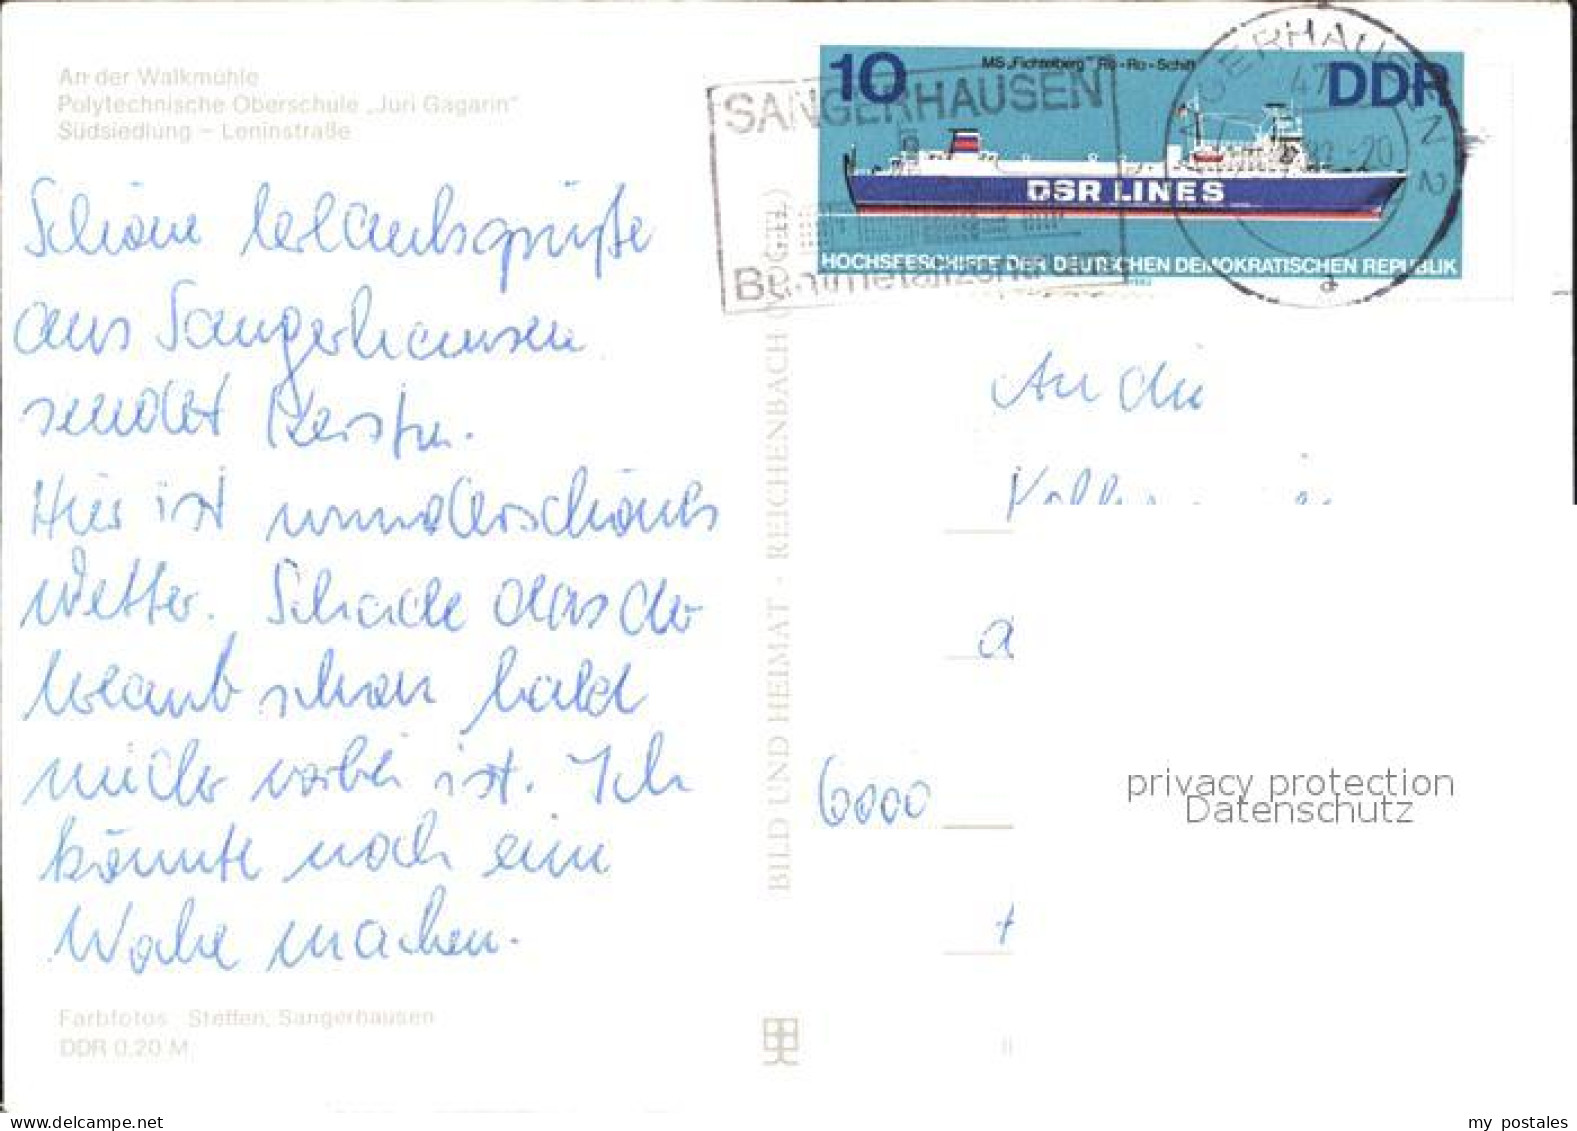 An der Walkmühle
Polytechnische Oberschule „Juri Gagarin"
Südsiedlung – Leninstraße
Schöne Urlaubsgrüße
aus Sangerhausen
sendet Kerstin.
Hier ist wunderschönes
Wetter. Schade das der
Urlaub schon bald
wieder vorbei ist. Ich
könnte noch eine
Woche machen.
Farbfotos: Steffen, Sangerhausen
DDR 0,20 M
BILD UND HEIMAT · REICHENBACH (VOGTL)
10
MS „Fichtelberg" Ro-Ro-Schiff
DDR
DSR LINES
HOCHSEESCHIFFE DER DEUTSCHEN DEMOKRATISCHEN REPUBLIK
1982
SANGERHAUSEN
SANGERHAUSEN 2
47
-20
a
An die
6000
privacy protection
Datenschutz
www.delcampe.net
my_postales